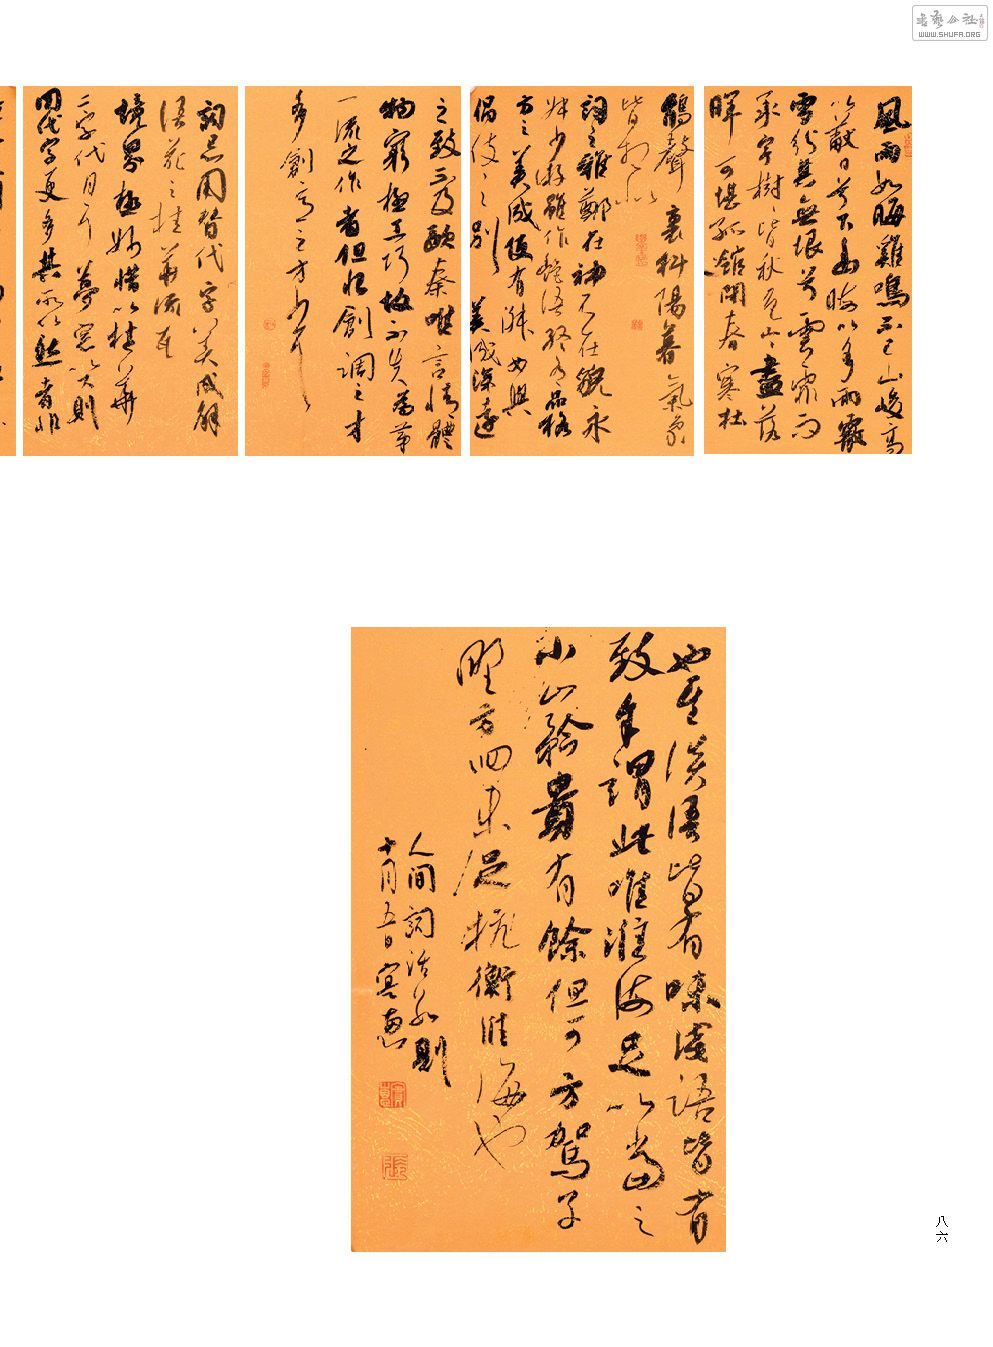 書藝公社
WWW.SHUFA.ORG
風雨如晦雞鳴不已山峻高
以蔽日兮下幽晦以多雨霰
雪紛其無垠兮雲霏而
承宇樹皆秋色山山盡落
暉可堪孤館閉春寒杜
鵑聲裏斜陽暮氣象
皆相似
詞之雅鄭在神不在貌永
叔少游雖作艷語終有品格
方之美成便有淑女與
倡伎之別
美成深遠
之致不及歐秦唯言情體
物窮極工巧故不失為第
一流之作者但恨創調之才
多創意之才少耳
詞忌用替代字美成解
語花之桂華流瓦
境界極妙惜以桂華
二字代月耳夢窗以下則
用代字更多其所以然者非
也其淡語皆有味淺語皆有
致余謂此唯淮海足以當之
小山矜貴有餘但可方駕子
野方回未足抗衡淮海也
人間詞話數則
十月五日
八六